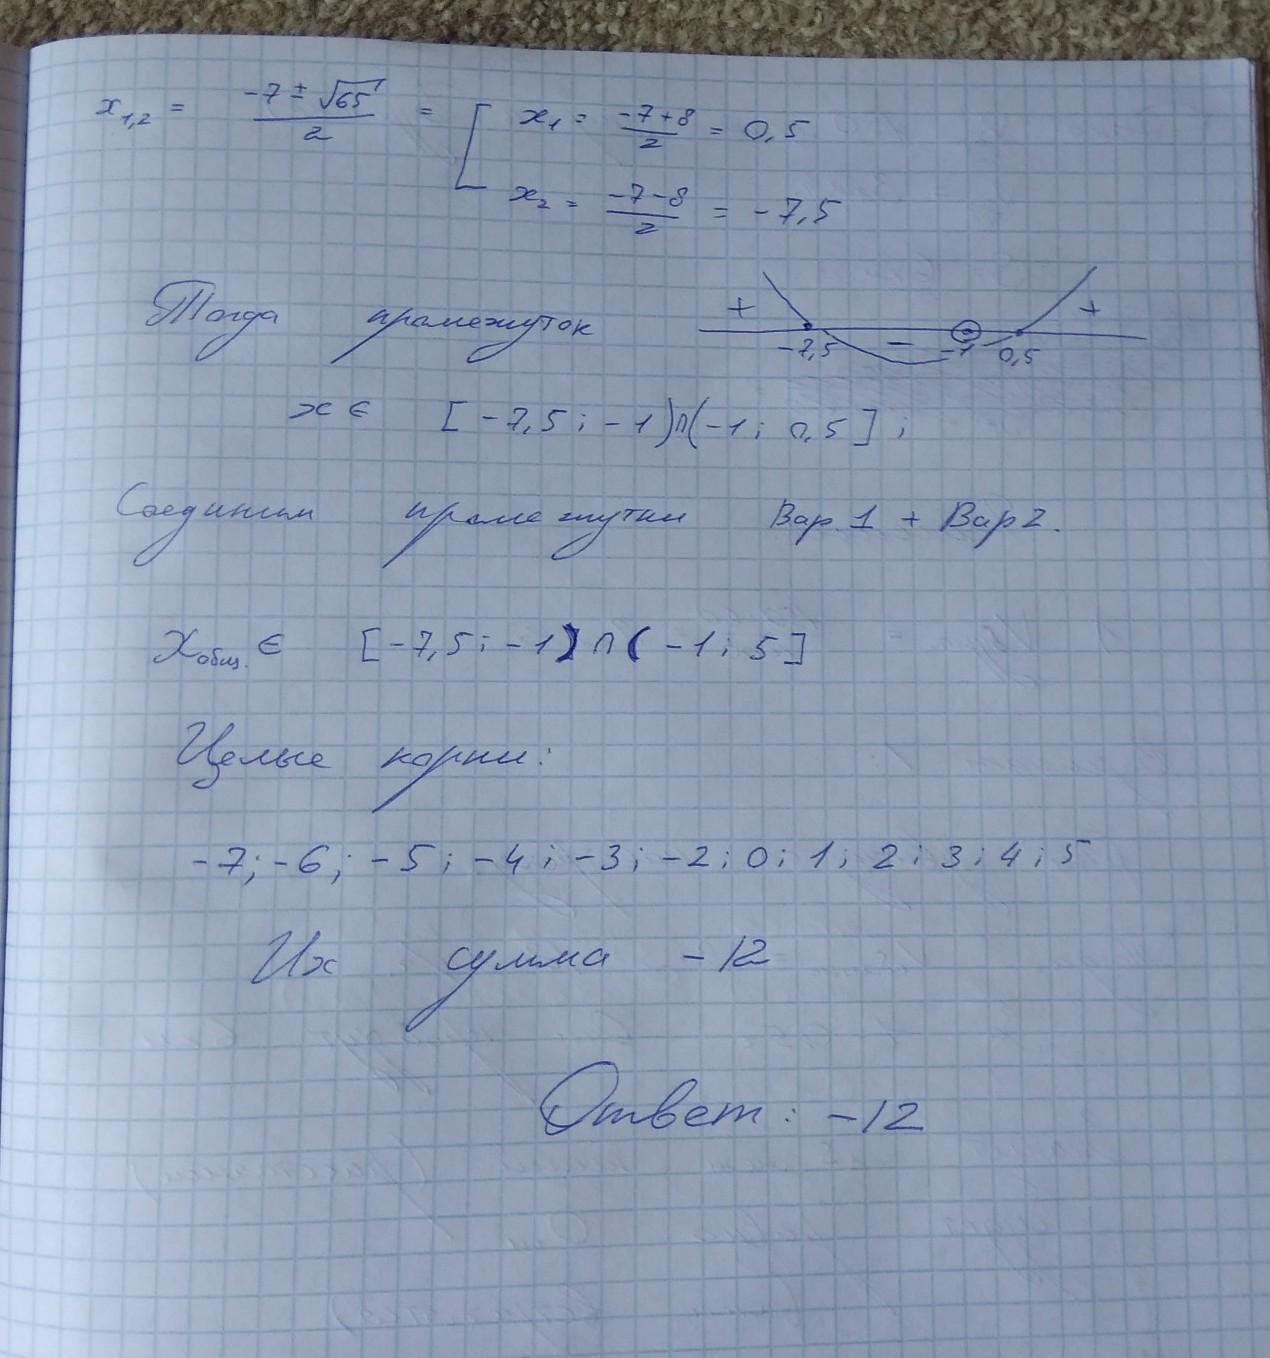 x₁,₂ = (-7 ± √65)/2 = [ x₁ = (-7+8)/2 = 0,5
x₂ = (-7-8)/2 = -7,5
Тогда промежуток
+ - +
-7,5 -1 0,5
x ∈ [-7,5; -1)∩(-1; 0,5];
Соединим промежутки Вар. 1 + Вар 2.
Xобщ. ∈ [-7,5; -1)∩(-1; 5]
Целые корни:
-7; -6; -5; -4; -3; -2; 0; 1; 2; 3; 4; 5
Их сумма -12
Ответ: -12